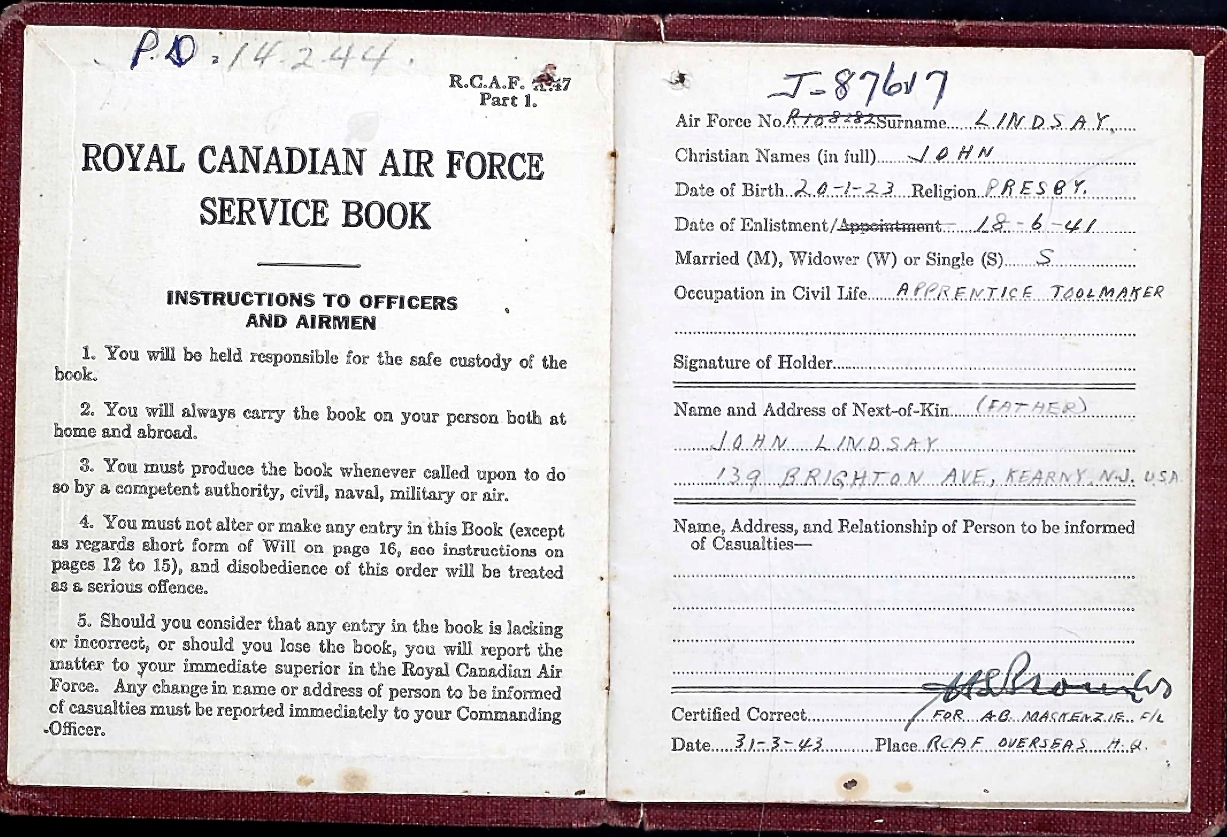 P.D. 14.2.44.
R.C.A.F.
Part 1.
ROYAL CANADIAN AIR FORCE
SERVICE BOOK
INSTRUCTIONS TO OFFICERS
AND AIRMEN
1. You will be held responsible for the safe custody of the
book.
2. You will always carry the book on your person both at
home and abroad.
3. You must produce the book whenever called upon to do
so by a competent authority, civil, naval, military or air.
4. You must not alter or make any entry in this Book (except
as regards short form of Will on page 16, see instructions on
pages 12 to 15), and disobedience of this order will be treated
as a serious offence.
5. Should you consider that any entry in the book is lacking
or incorrect, or should you lose the book, you will report the
matter to your immediate superior in the Royal Canadian Air
Force. Any change in name or address of person to be informed
of casualties must be reported immediately to your Commanding
Officer.
J-87617
Air Force No. R108282 Surname LINDSAY,
Christian Names (in full) JOHN
Date of Birth 20-1-23 Religion PRESBY.
Date of Enlistment/Appointment 18-6-41
Married (M), Widower (W) or Single (S) S
Occupation in Civil Life APPRENTICE TOOLMAKER
Signature of Holder
Name and Address of Next-of-Kin (FATHER)
JOHN LINDSAY
139 BRIGHTON AVE, KEARNY. N.J. USA
Name, Address, and Relationship of Person to be informed
of Casualties—
Certified Correct FOR A.B. MACKENZIE F/L
Date 31-3-43 Place RCAF OVERSEAS H.Q.